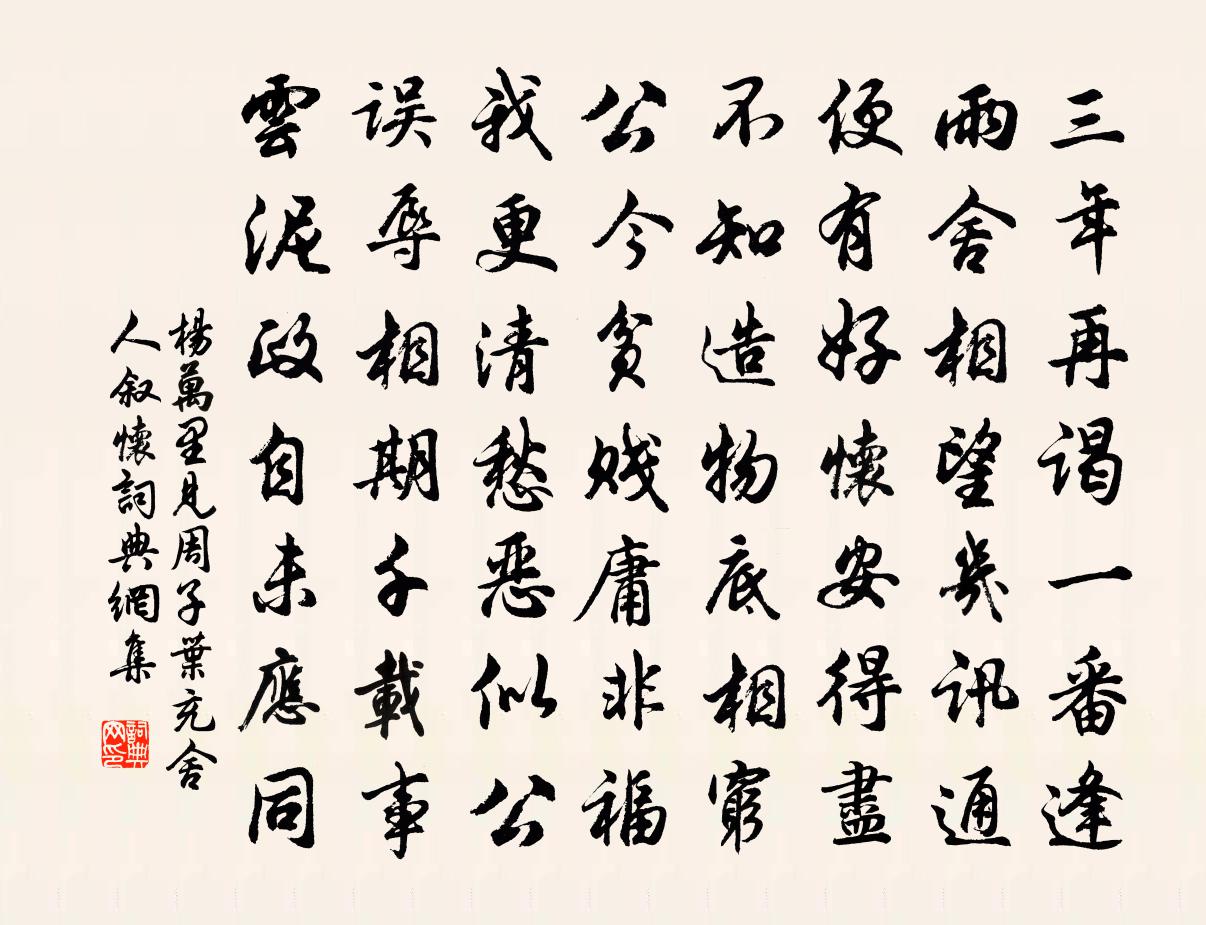 三年再谒一番逢
雨舍相望幾訊通
便有好懷安得盡
不知造物底相窮
公今貧賤庸非福
我更清愁惡似公
误辱相期千載事
雲泥政自未應同
楊萬里見周子葉充舍
人叙懷詞典網集
詞典網印